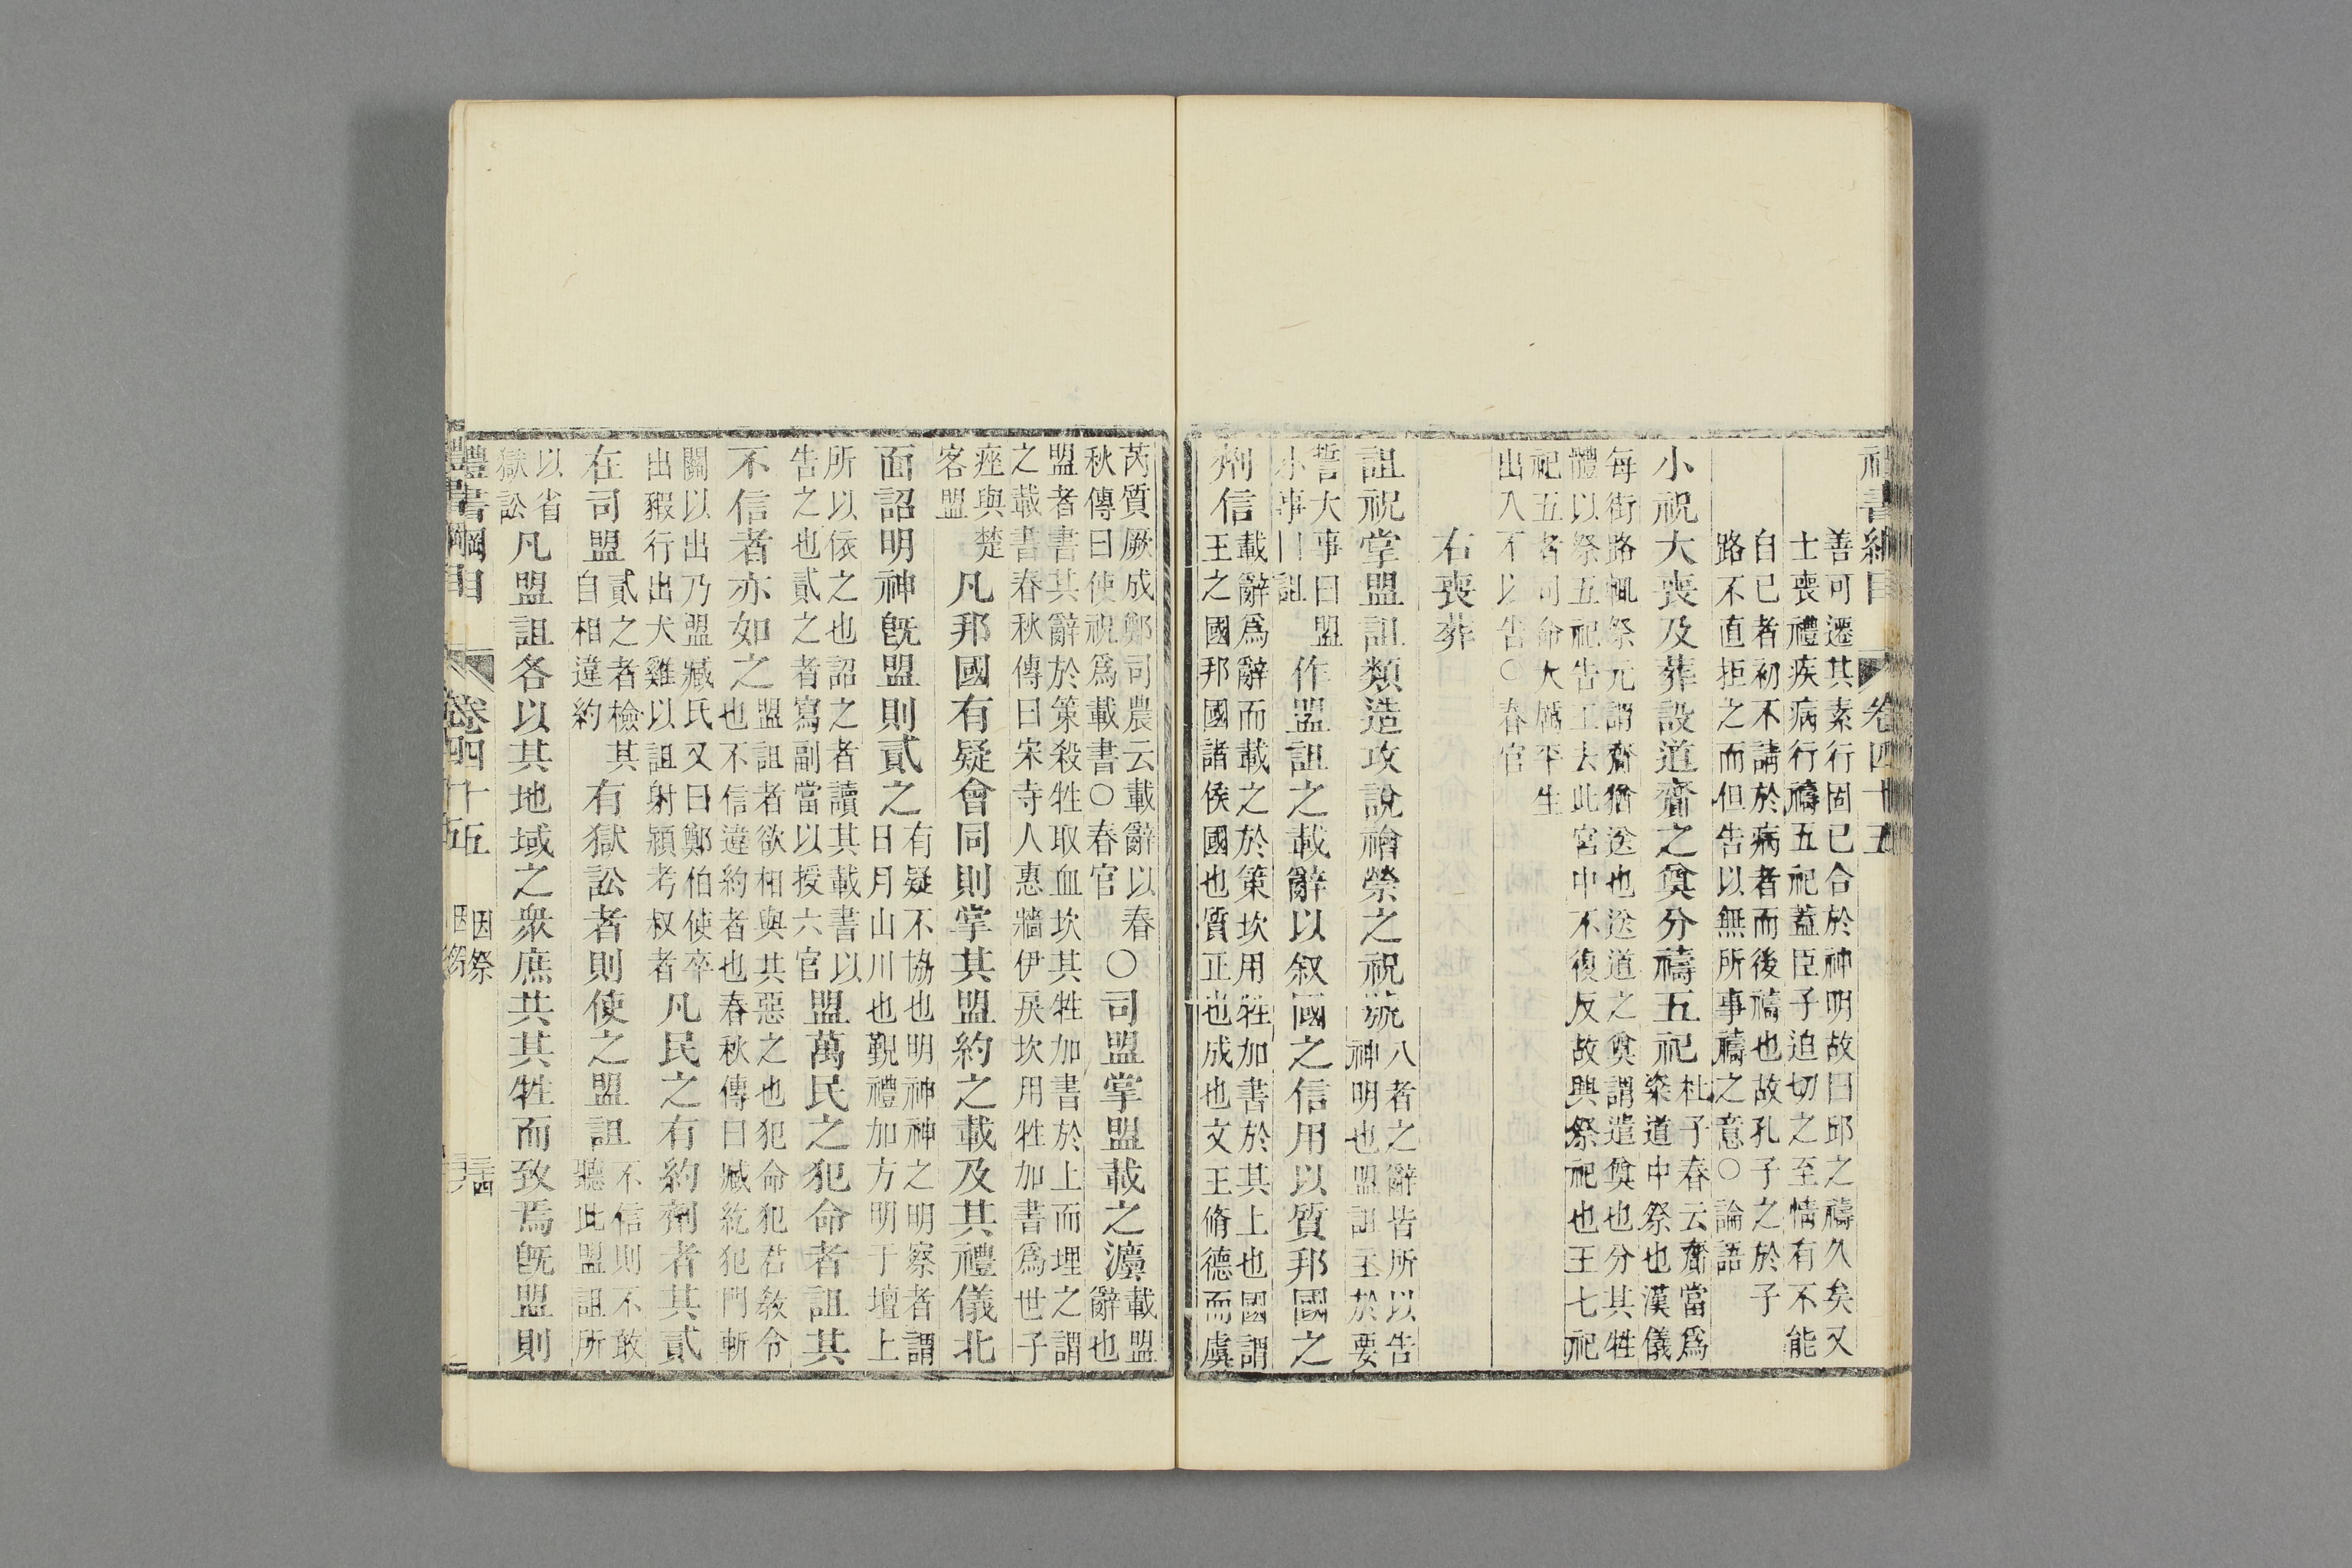 禮書綱目　卷四十五
善可遷其素行固已合於神明故曰邱之禱久矣又
士喪禮疾病行禱五祀蓋臣子迫切之至情有不能
自已者初不請於病者而後禱也故孔子之於子
路不直拒之而但告以無所事禱之意○論語
小祝大喪及葬設道齎之奠分禱五祀
杜子春云齎當為
粢道中祭也漢儀
每街路輒祭元謂齎猶送也送道之奠謂遣奠也分其牲
體以祭五祀告王去此宮中不復反故興祭祀也王七祀
祀五者司命大厲平生
出入不以告○春官
右喪葬
詛祝掌盟詛類造攻說禬禜之祝號
八者之辭皆所以告
神明也盟詛主於要
誓大事曰盟
小事曰詛
作盟詛之載辭以叙國之信用以質邦國之
劑信
載辭爲辭而載之於策坎用牲加書於其上也國謂
王之國邦國諸侯國也質正也成也文王脩德而虞
芮質厥成鄭司農云載辭以春
秋傳曰使祝爲載書○春官
○司盟掌盟載之灋
載盟
辭也
盟者書其辭於策殺牲取血坎其牲加書於上而埋之謂
之載書春秋傳曰宋寺人惠牆伊戾坎用牲加書爲世子
痤與楚
客盟
凡邦國有疑會同則掌其盟約之載及其禮儀北
面詔明神旣盟則貳之
有疑不協也明神神之明察者謂
日月山川也覲禮加方明于壇上
所以依之也詔之者讀其載書以
告之也貳之者寫副當以授六官
盟萬民之犯命者詛其
不信者亦如之
盟詛者欲相與共惡之也犯命犯君敎令
也不信違約者也春秋傳曰臧紇犯門斬
關以出乃盟臧氏又曰鄭伯使卒
出豭行出犬雞以詛射潁考叔者
凡民之有約劑者其貳
在司盟
貳之者檢其
自相違約
有獄訟者則使之盟詛
不信則不敢
聽此盟詛所
以省
獄訟
凡盟詛各以其地域之衆庶共其牲而致焉旣盟則
禮書綱目　卷四十五　因祭